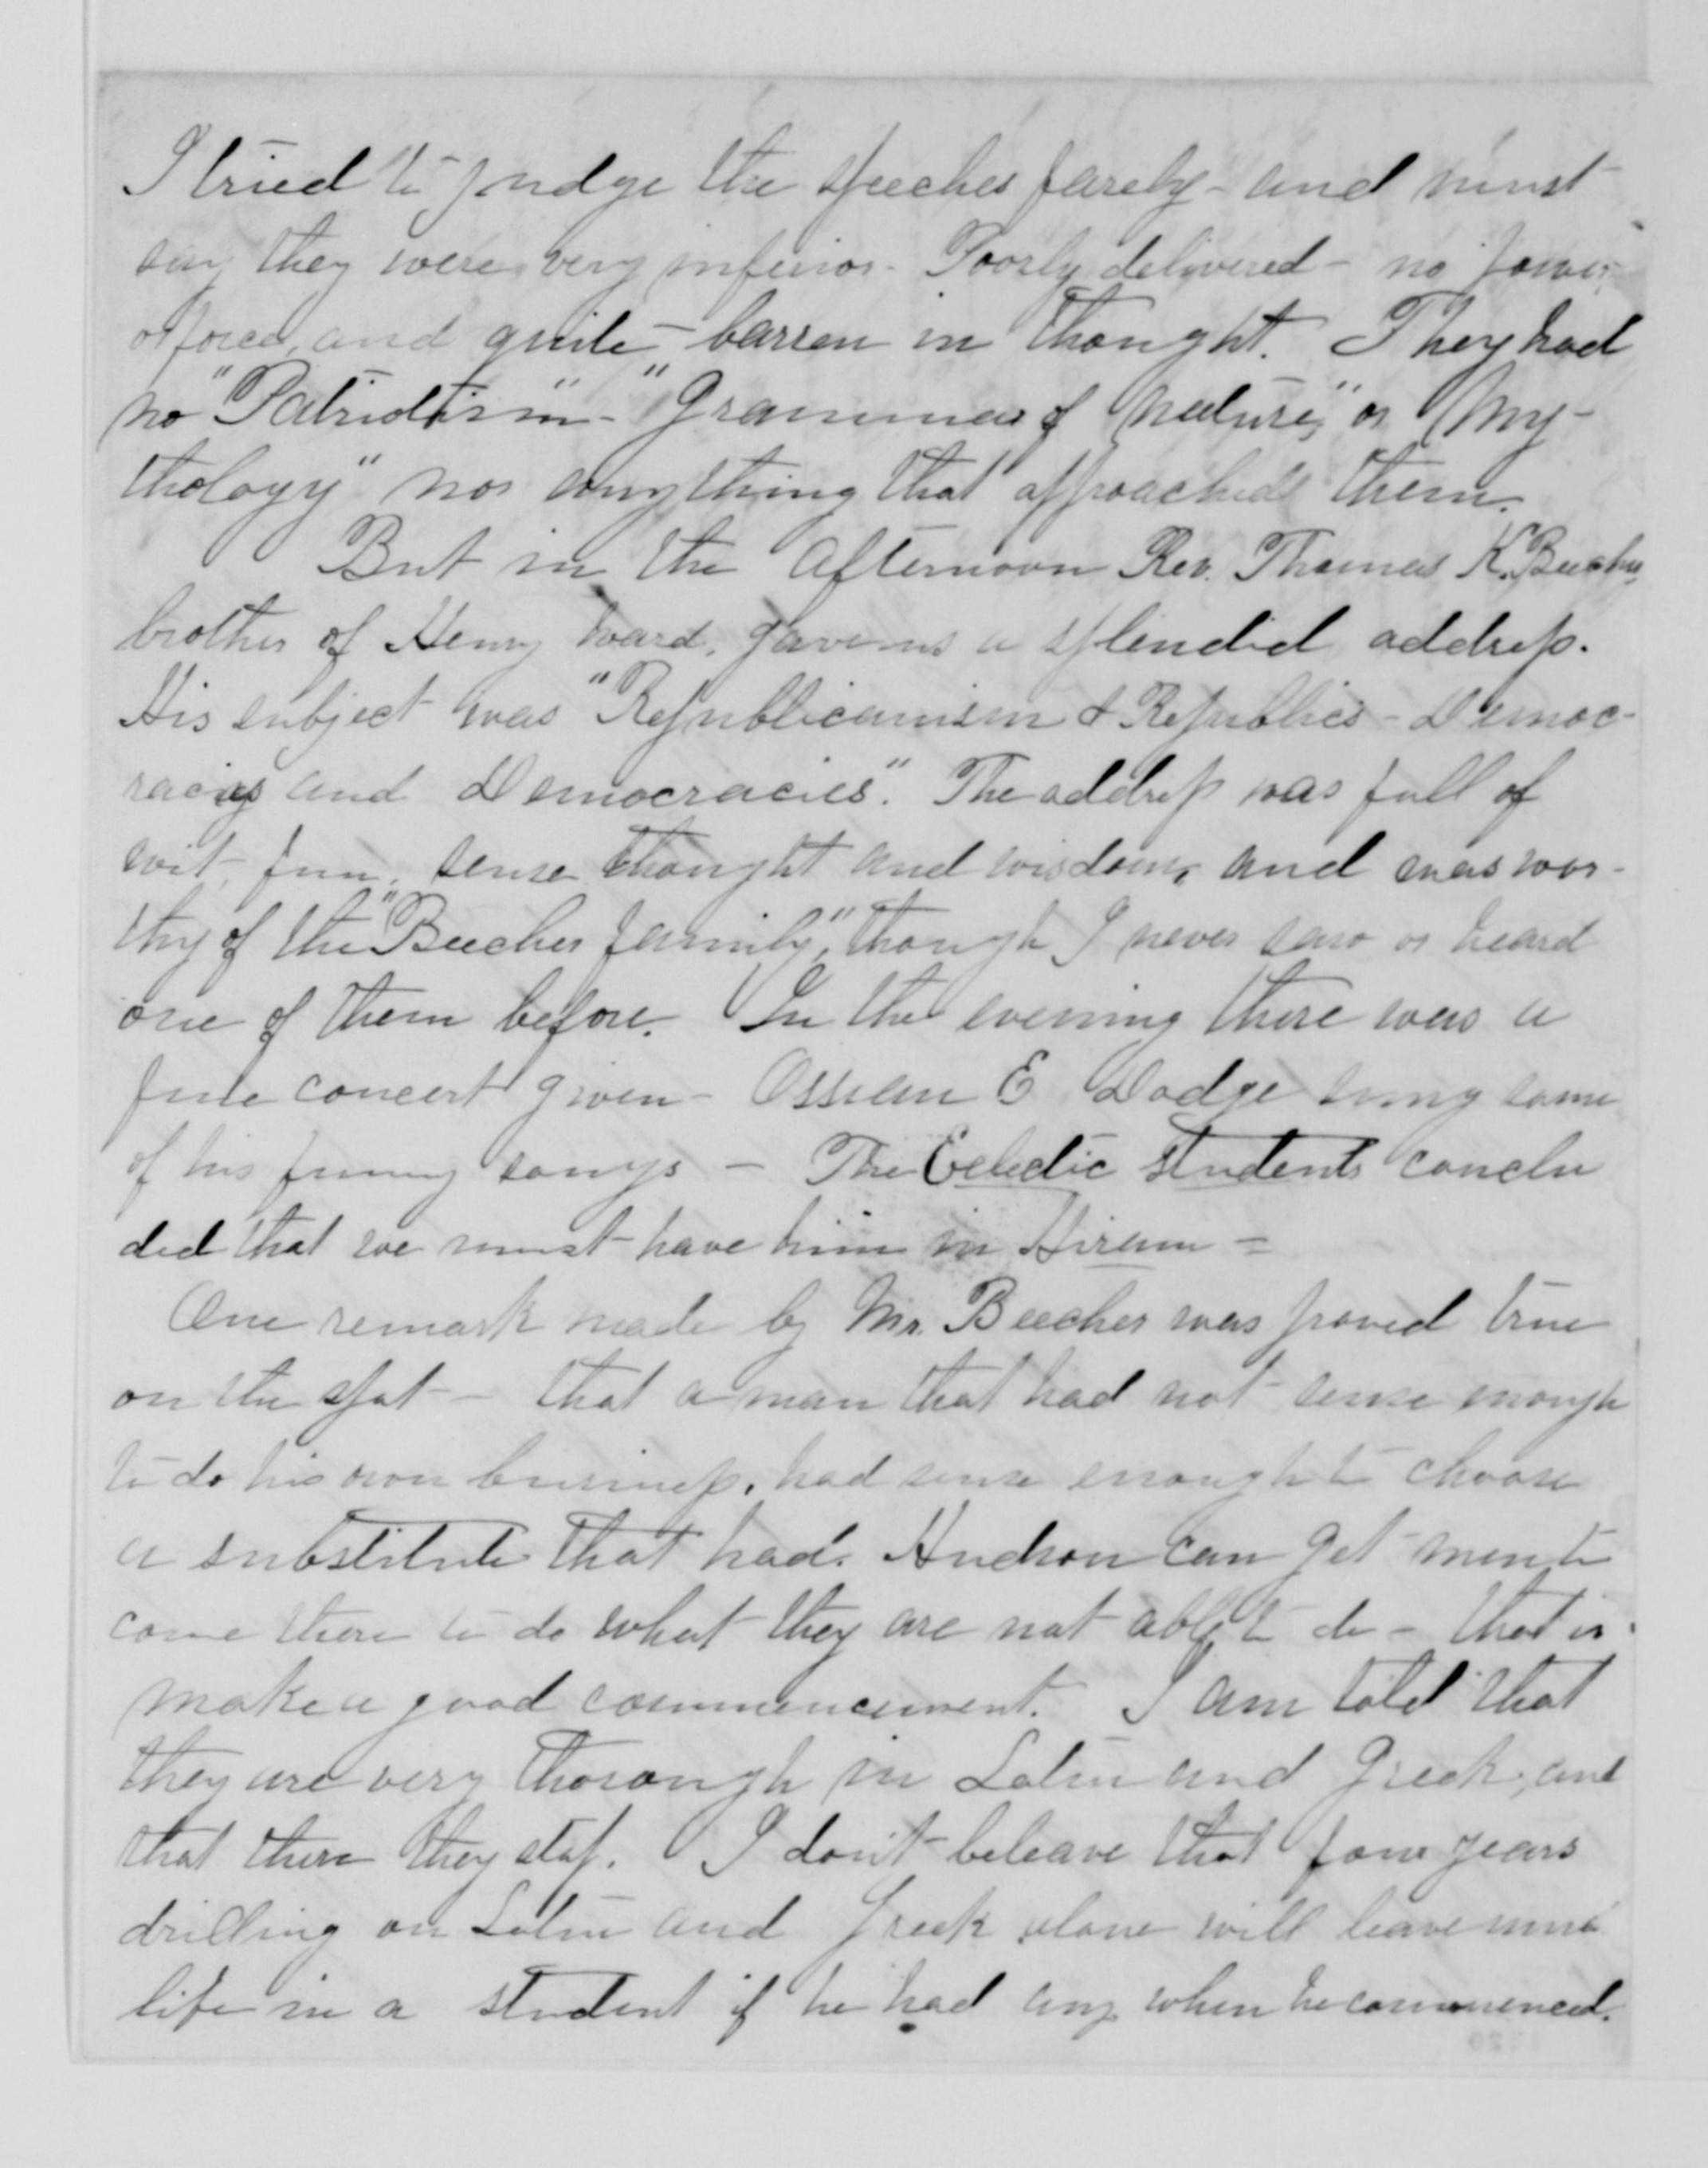 I tried to judge the speeches farely - and must
say they were very inferior - Poorly delivered - no power
or force, and quite barren in thought. They had
no "Patriotism" - "Grammar of Nature," or "My-
thology" nor anything that approached them.
But in the afternoon Rev. Thomas K. Beecher,
brother of Henry Ward, gave us a splendid address.
His subject was "Republicanism & Republics - Democ-
racy and Democracies". The address was full of
wit, fun, sense thought and wisdom, and was wor-
thy of the "Beecher family", though I never saw or heard
one of them before. In the evening there was a
fine concert given - Ossian E. Dodge sung some
of his funny songs - The Eclectic students conclu
ded that we must have him in Hiram -
One remark made by Mr. Beecher was proved true
on the spot - that a man that had not sense enough
to do his own business, had sense enough to choose
a substitute that had. Hudson can get men to
come there to do what they are not able to do - that is
make a good commencement. I am told that
they are very thorough in Latin and Greek, and
that there they stop. I don't beleave that four years
drilling on Latin and Greek alone will leave much
life in a student if he had any when he commenced.